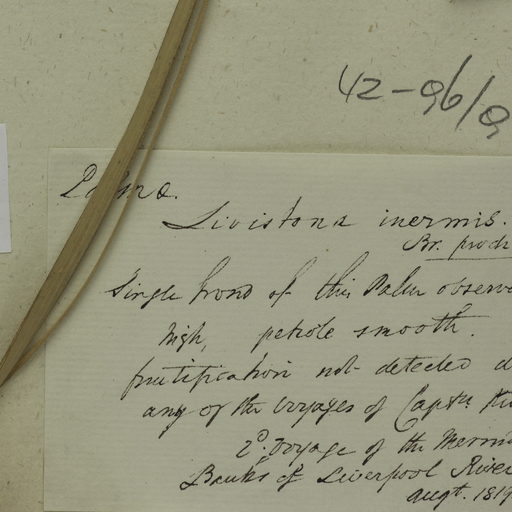 42-96/9
Palmæ.
Livistona inermis.
Br. prodr
Single frond of this Palm observe
high, petiole smooth.
fructification not detected d
any of the voyages of Captn.
2d. Voyage of the Merm
Banks of Liverpool River
augt. 1819